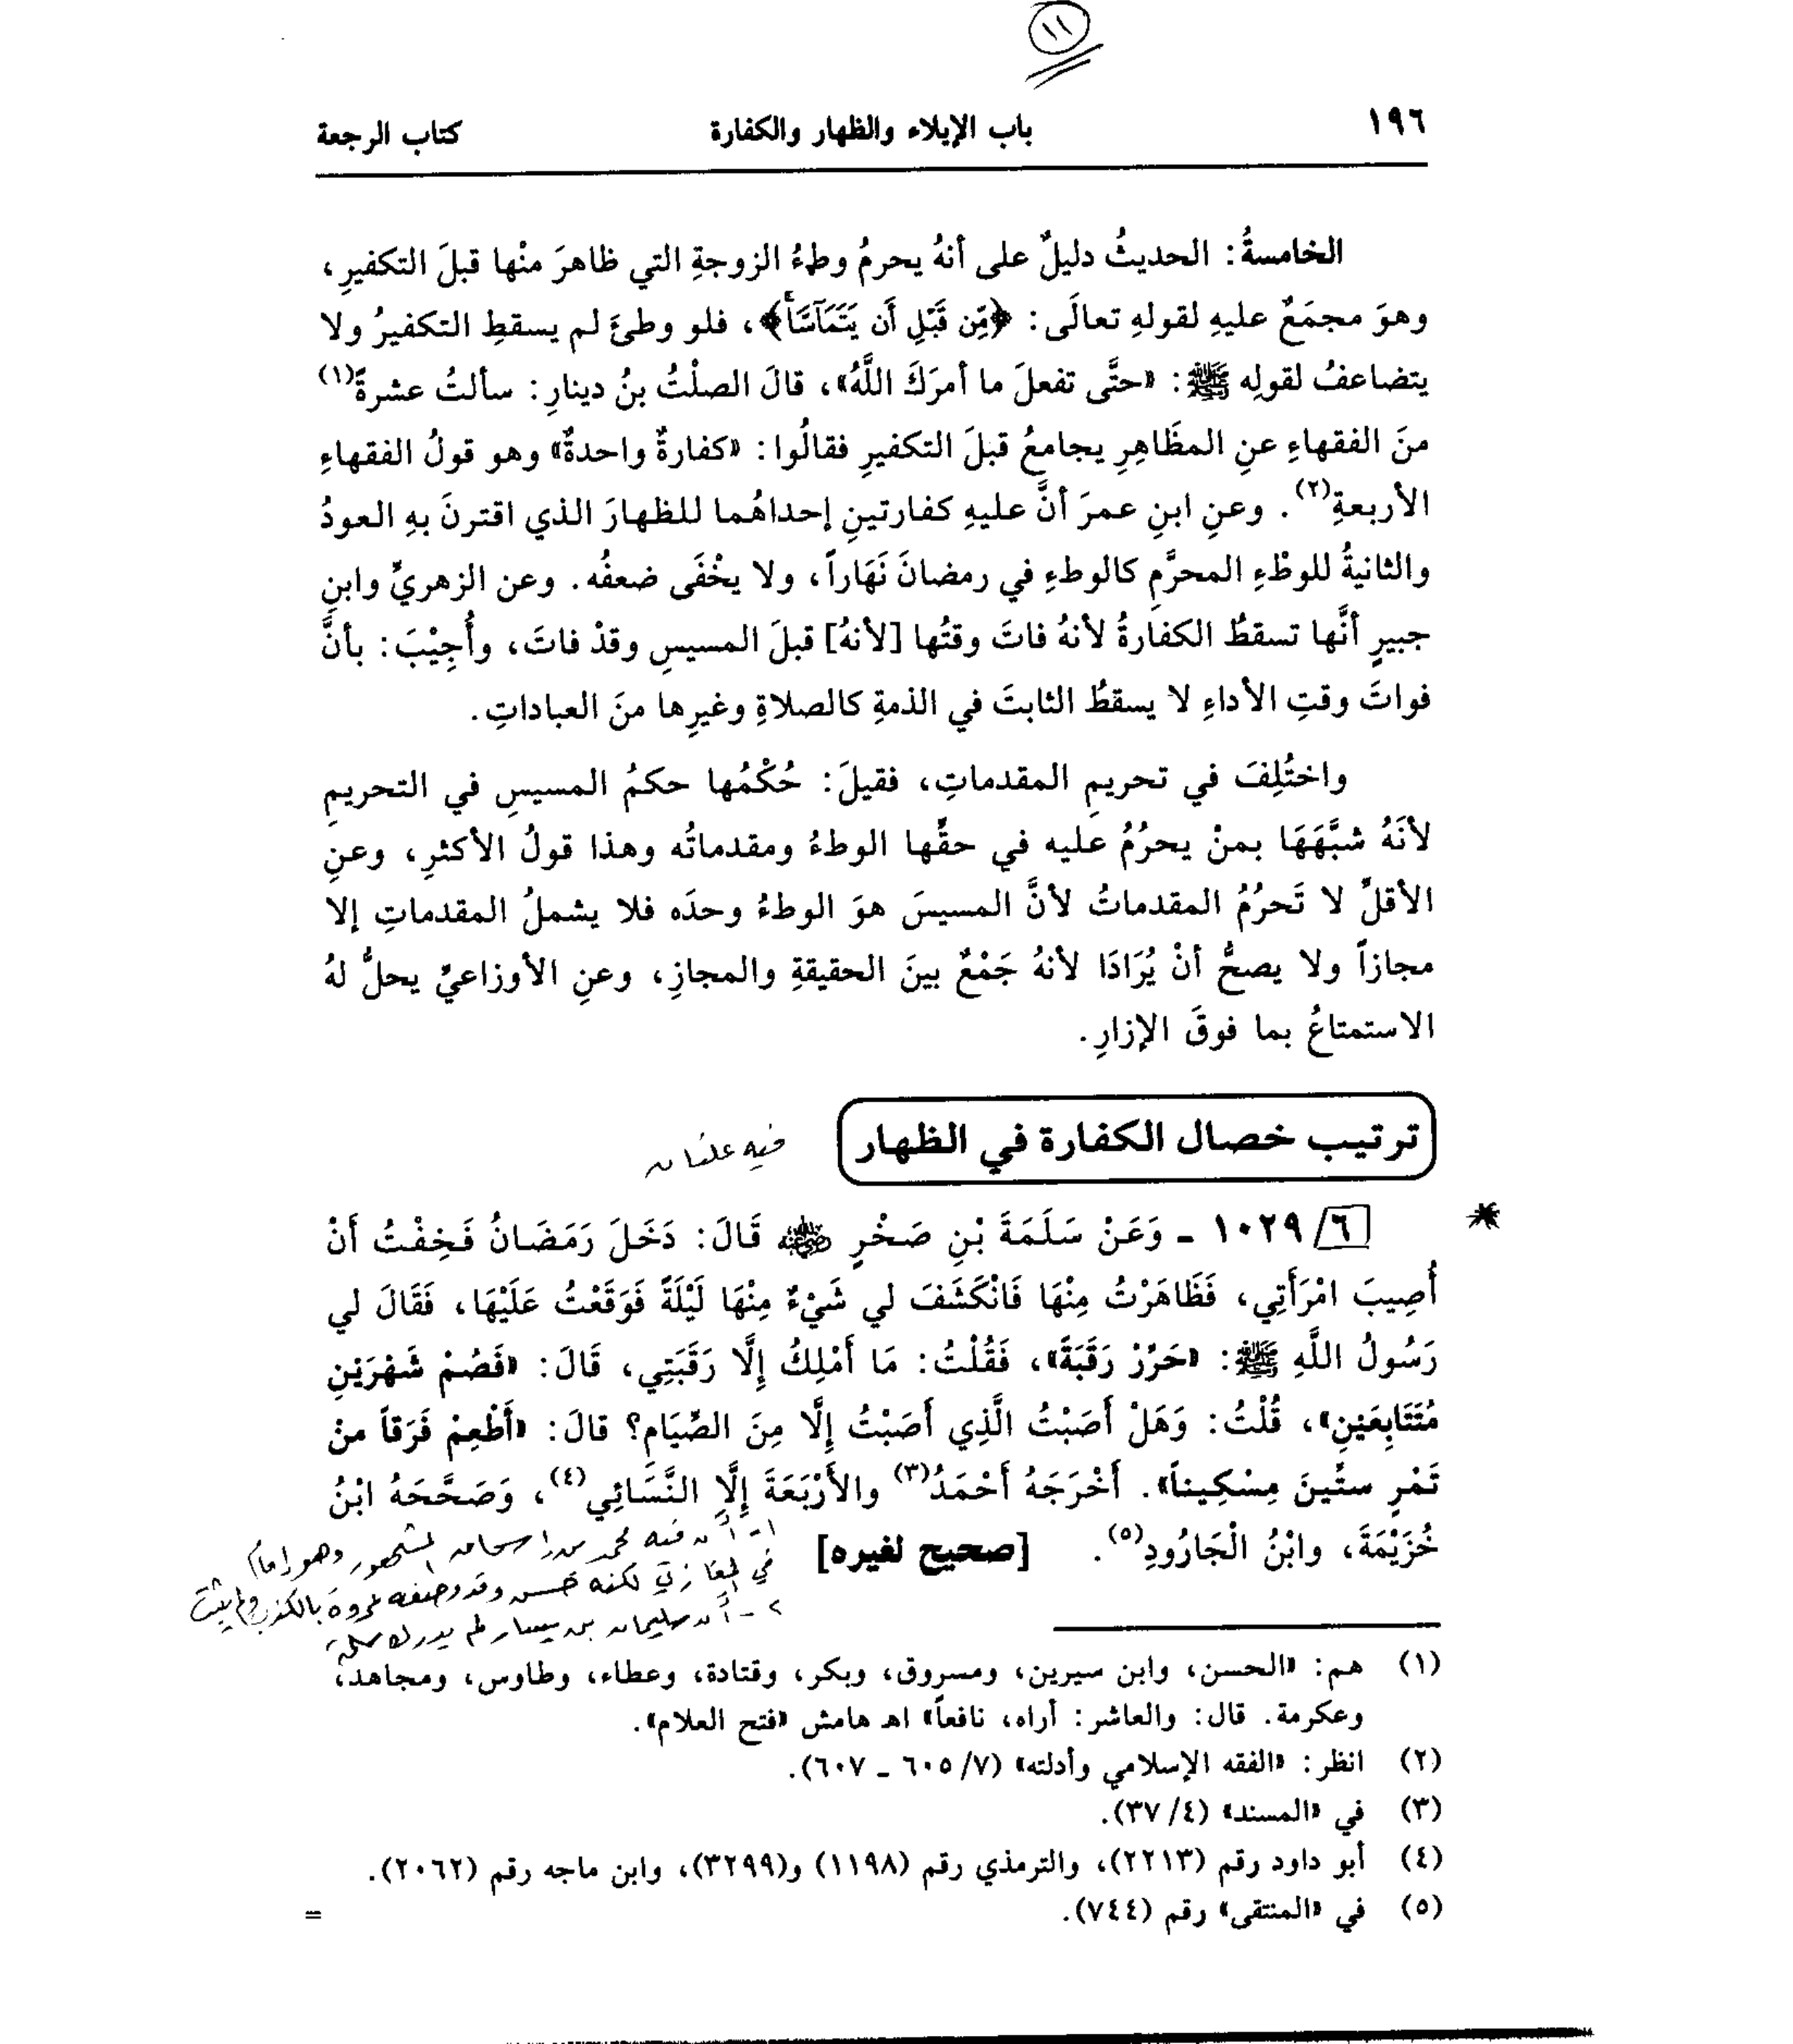 ١١
١٩٦ باب الإيلاء والظهار والكفارة كتاب الرجعة
الخامسةُ: الحديثُ دليلٌ على أنهُ يحرمُ وطءُ الزوجةِ التي ظاهرَ منْها قبلَ التكفيرِ،
وهوَ مجمَعٌ عليهِ لقولهِ تعالَى: ﴿مِّن قَبْلِ أَن يَتَمَآسَّاۚ﴾، فلو وطئَ لم يسقطِ التكفيرُ ولا
يتضاعفُ لقولِه ﷺ: «حتَّى تفعلَ ما أمرَكَ اللَّهُ»، قالَ الصلْتُ بنُ دينارِ: سألتُ عشرةً(١)
منَ الفقهاءِ عنِ المظَاهِرِ يجامعُ قبلَ التكفيرِ فقالُوا: «كفارةٌ واحدةٌ» وهو قولُ الفقهاءِ
الأربعةِ(٢). وعنِ ابنِ عمرَ أنَّ عليهِ كفارتينِ إحداهُما للظهارَ الذي اقترنَ بهِ العودُ
والثانيةُ للوطْءِ المحرَّمِ كالوطءِ في رمضانَ نَهَاراً، ولا يخْفَى ضعفُه. وعن الزهريِّ وابنِ
جبيرٍ أنَّها تسقطُ الكفارةُ لأنهُ فاتَ وقتُها [لأنهُ] قبلَ المسيسِ وقدْ فاتَ، وأُجِيْبَ: بأنَّ
فواتَ وقتِ الأداءِ لا يسقطُ الثابتَ في الذمةِ كالصلاةِ وغيرِها منَ العباداتِ.
واختُلِفَ في تحريمِ المقدماتِ، فقيلَ: حُكْمُها حكمُ المسيسِ في التحريمِ
لأنَهُ شبَّهَهَا بمنْ يحرُمُ عليه في حقِّها الوطءُ ومقدماتُه وهذا قولُ الأكثرِ، وعنِ
الأقلِّ لا تَحرُمُ المقدماتُ لأنَّ المسيسَ هوَ الوطءُ وحدَه فلا يشملُ المقدماتِ إلا
مجازاً ولا يصحُّ أنْ يُرَادَا لأنهُ جَمْعٌ بينَ الحقيقةِ والمجازِ، وعنِ الأوزاعيِّ يحلُّ لهُ
الاستمتاعُ بما فوقَ الإزارِ.
ترتيب خصال الكفارة في الظهار فيه علتان
٦/ ١٠٢٩ - وَعَنْ سَلَمَةَ بْنِ صَخْرٍ رضي الله عنه قَالَ: دَخَلَ رَمَضَانُ فَخِفْتُ أَنْ
أُصِيبَ امْرَأَتِي، فَظَاهَرْتُ مِنْهَا فَانْكَشَفَ لي شَيْءٌ مِنْهَا لَيْلَةً فَوَقَعْتُ عَلَيْهَا، فَقَالَ لي
رَسُولُ اللَّهِ ﷺ: «حَرِّرْ رَقَبَةً»، فَقُلْتُ: مَا أَمْلِكُ إِلَّا رَقَبَتِي، قَالَ: «فَصُمْ شَهْرَيْنِ
مُتَتَابِعَيْنِ»، قُلْتُ: وَهَلْ أَصَبْتُ الَّذِي أَصَبْتُ إِلَّا مِنَ الصِّيَامِ؟ قالَ: «أَطْعِمْ فَرَقاً منْ
تَمْرٍ ستِّينَ مِسْكِيناً». أَخْرَجَهُ أَحْمَدُ(٣) والأَرْبَعَةَ إِلَّا النَّسَائِي(٤)، وَصَحَّحَهُ ابْنُ
خُزَيْمَةَ، وابْنُ الْجَارُودِ(٥). [صحيح لغيره]
١- أن فيه محمد بن إسحاق المشهور وهو إمام
في المغازي لكنه حسن وقد وصفه عروة بالكذب ولم يثبت
٢- أن سليمان بن يسار لم يدرك سلمة
(١) هم: «الحسن، وابن سيرين، ومسروق، وبكر، وقتادة، وعطاء، وطاوس، ومجاهد،
وعكرمة. قال: والعاشر: أراه، نافعاً» اهـ هامش «فتح العلام».
(٢) انظر: «الفقه الإسلامي وأدلته» (٧/ ٦٠٥ - ٦٠٧).
(٣) في «المسند» (٤/ ٣٧).
(٤) أبو داود رقم (٢٢١٣)، والترمذي رقم (١١٩٨) و(٣٢٩٩)، وابن ماجه رقم (٢٠٦٢).
(٥) في «المنتقى» رقم (٧٤٤). =